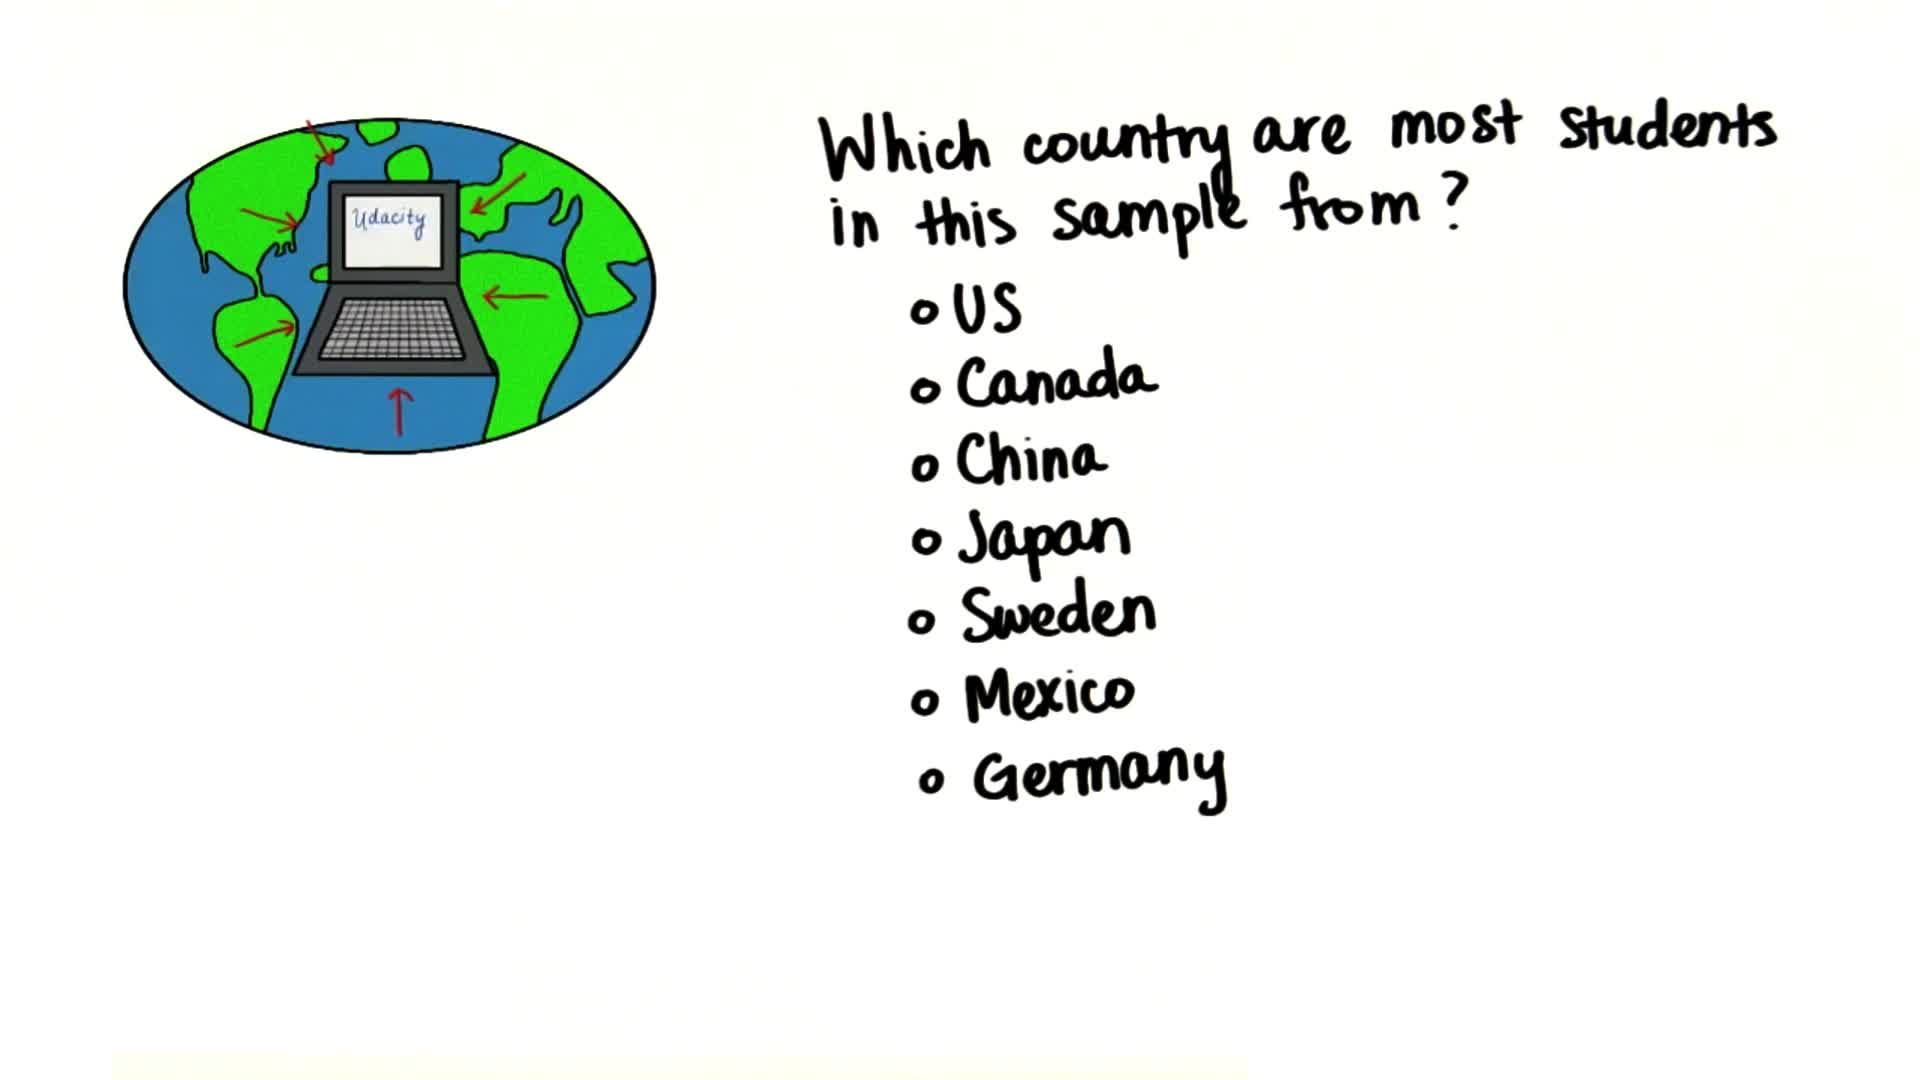 Udacity
Which country are most students
in this sample from?
US
Canada
China
Japan
Sweden
Mexico
Germany